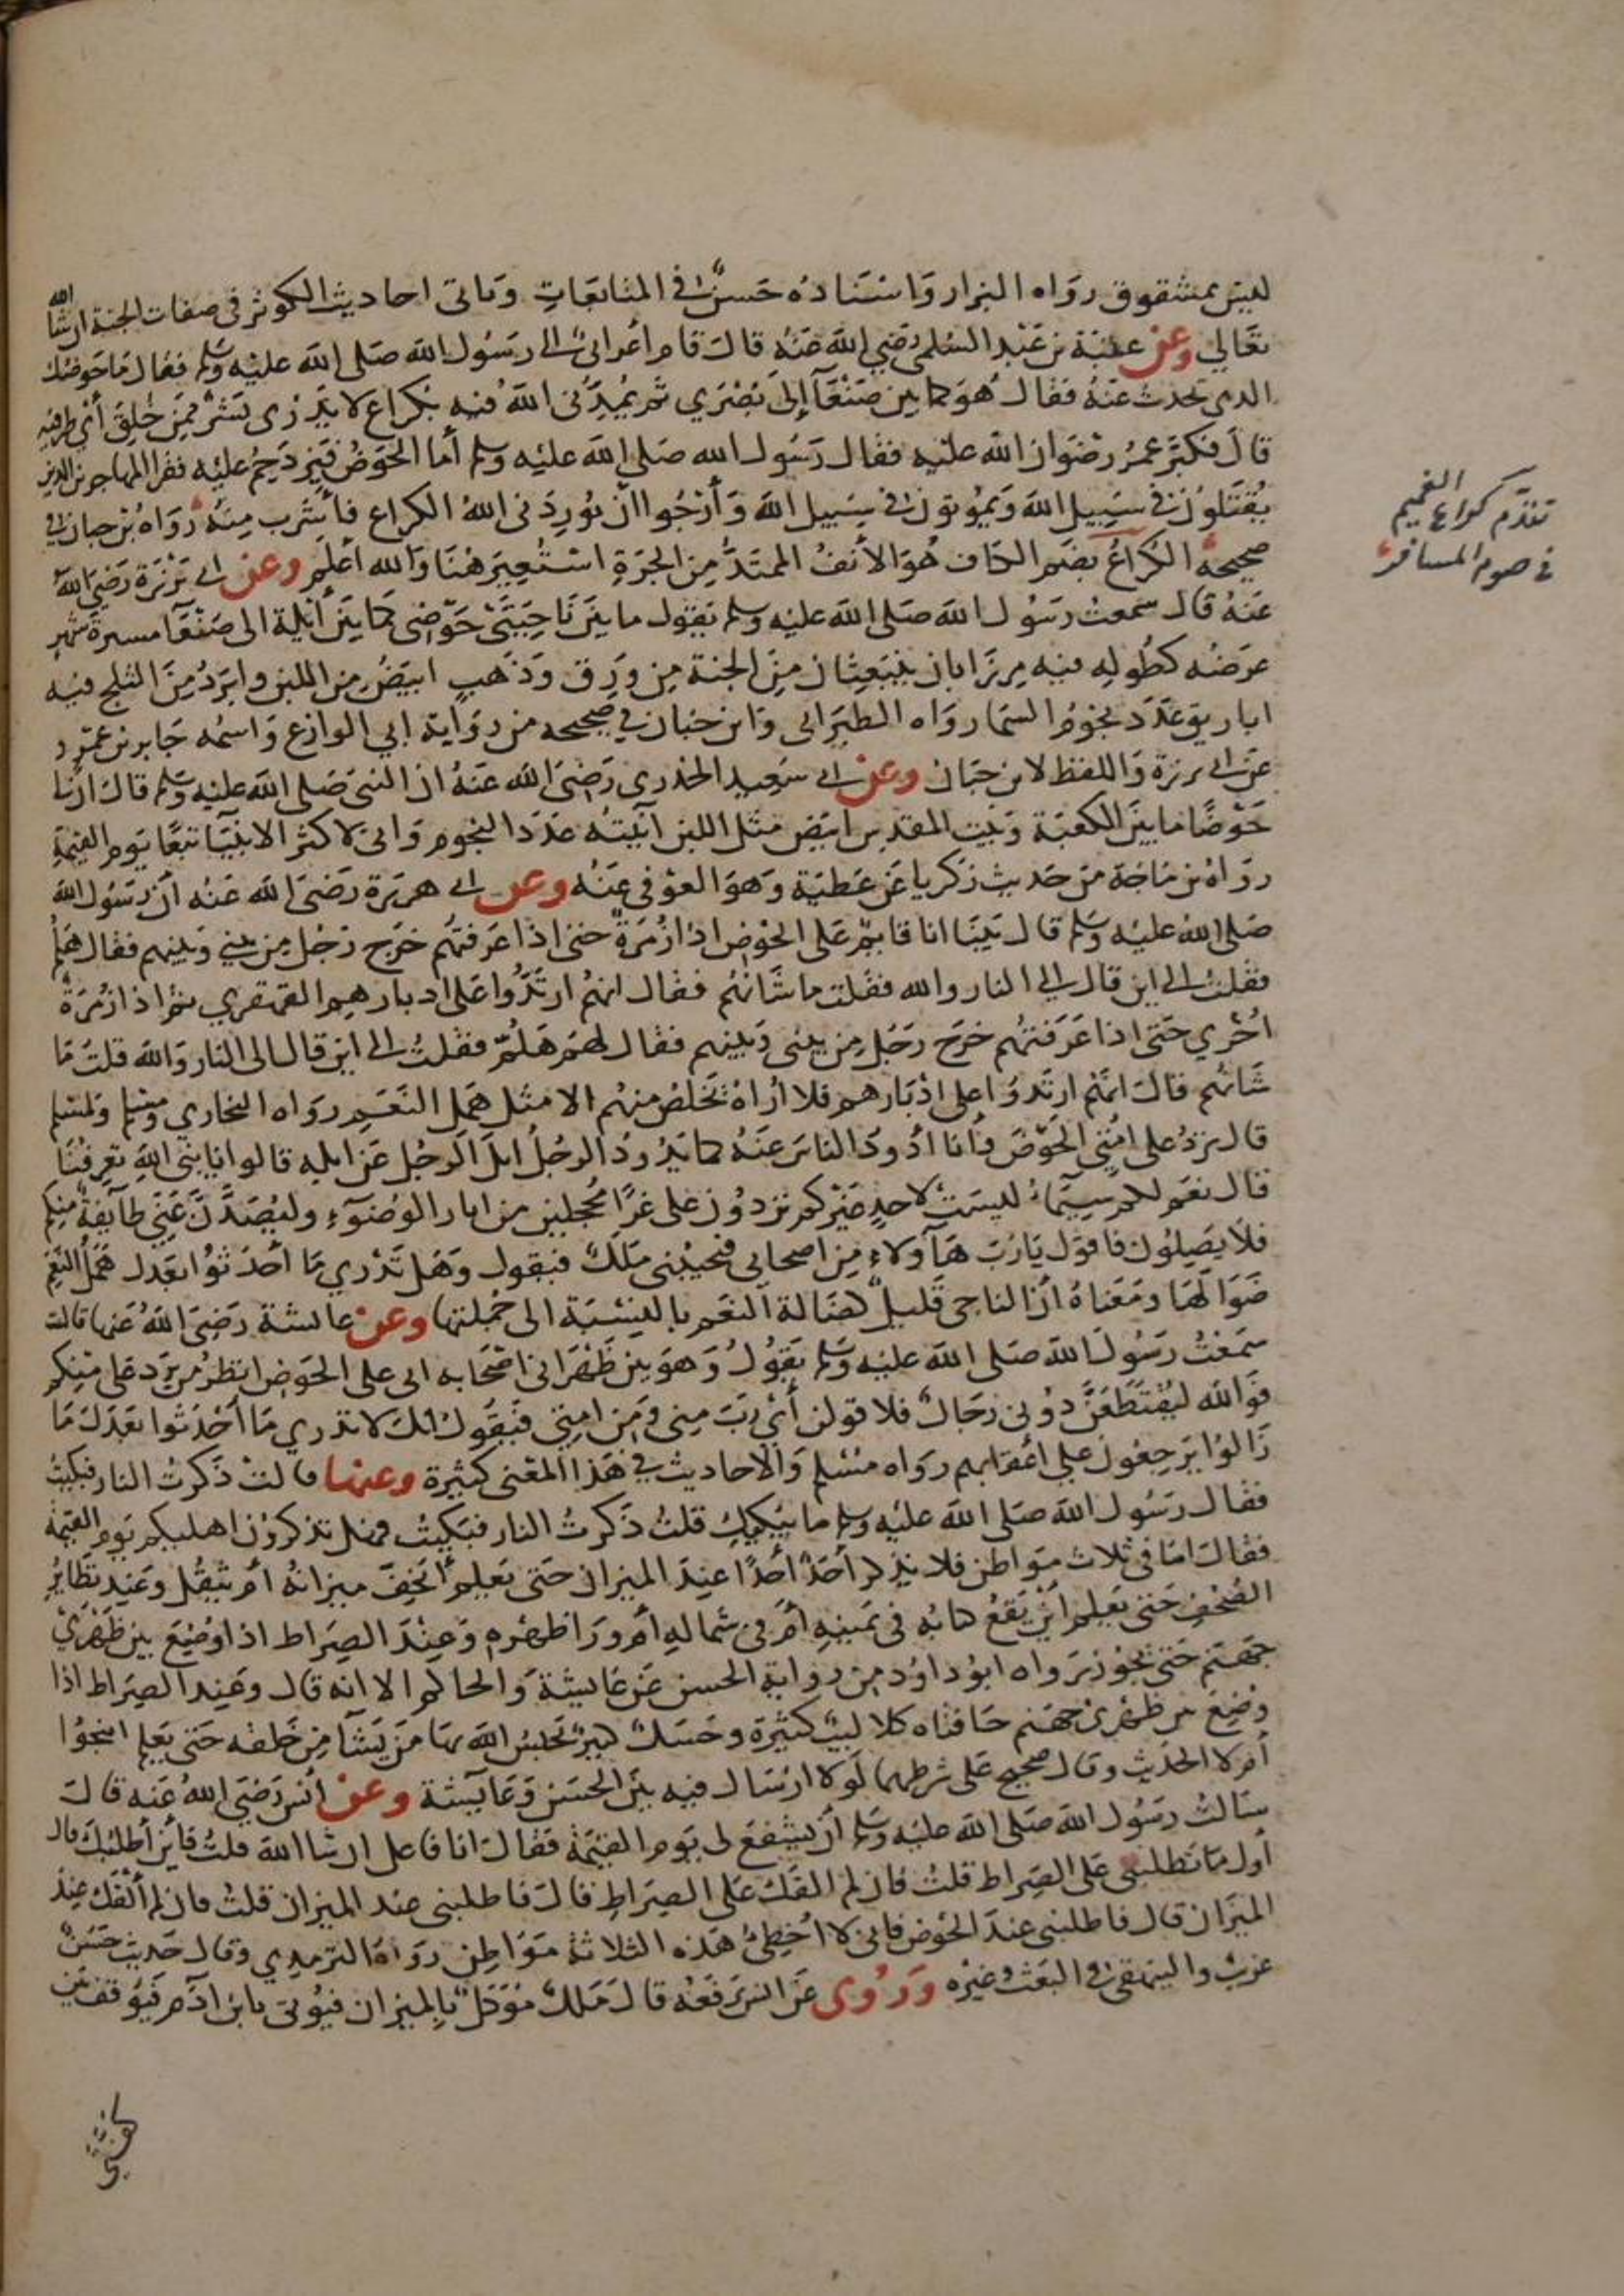 ليس بمشقوق رواه البزار واسناده حسن في المتابعات وياتى احاديث الكوثر فى صفات الجنة ان شا الله
تعالي وعن عتبة بن عبد السلمي رضي الله عنه قال قام أعرابي الى رسول الله صلى الله عليه وسلم فقال ما حوضك
الدى تحدث عنه فقال هو كما بين صنعآ إلى بصري ثم يمدني الله فيه بكراع لا يدرى بشر ممن خلق أي طرفيه
قال فكبر عمر رضوان الله عليه فقال رسول الله صلى الله عليه وسلم أما الحوض فيزدحم عليه فقرا المهاجرين الدين
يقتلون في سبيل الله ويموتون في سبيل الله وأرجوا ان يوردنى الله الكراع فأشرب منه رواه بن حبان في
صحيحه الكراع بضم الكاف هو الأنف الممتد من الحرة استعير هنا والله أعلم وعن ابي برزة رضي الله
عنه قال سمعت رسول الله صلى الله عليه وسلم يقول ما بين ناحيتي حوضى كما بين أيلة الى صنعآ مسيرة شهر
عرضه كطوله فيه مرزابان ينبعثان من الجنة من ورق وذهب ابيض من اللبن وابرد من الثلج فيه
اباريق عدد نجوم السما رواه الطبرانى وابن حبان في صحيحه من رواية ابي الوازع واسمه جابر بن عمرو
عن ابى برزة واللفظ لابن حبان وعن ابى سعيد الخدرى رضى الله عنه ان النبى صلى الله عليه وسلم قال ان لى
حوضا ما بين الكعبة وبيت المقدس ابيض مثل اللبن آنيته عدد النجوم وانى لاكثر الانبيآ تبعا يوم القيمة
رواه بن ماجة من حديث زكريا عن عطية وهو العوفى عنه وعن ابى هريرة رضى الله عنه أن رسول الله
صلى الله عليه وسلم قال بينا انا قايم على الحوض اذا زمرة حتى اذا عرفتهم خرج رجل من بيني وبينهم فقال هلم
فقلت الى اين قال الي النار والله فقلت ما شانهم فقال انهم ارتدوا على ادبارهم القهقري ثم اذا زمرة
اخري حتى اذا عرفتهم خرج رجل من بينى وبينهم فقال لهم هلم فقلت الى اين قال الى النار والله قلت ما
شانهم قال انهم ارتدوا على ادبارهم فلا اراه تخلص منهم الا مثل همل النعم رواه البخاري ومسلم ولمسلم
قال ترد على امتي الحوض وأنا أذود الناس عنه كما يذود الرجل ابل الرجل عن ابله قالوا يا نبى الله تعرفنا
قال نعم لكم سيما ليست لاحد غيركم تردون على غرا محجلين من اثار الوضوء وليصدن عني طآيفة منكم
فلا يصلون فاقول يا رب هآولاء من اصحابى فيجيبنى ملك فيقول وهل تدري ما أحدثوا بعدك همل النعم
ضوالها ومعناه أن الناجى قليل كضالة النعم بالنسبة الى جملتها وعن عايشة رضى الله عنها قالت
سمعت رسول الله صلى الله عليه وسلم يقول وهو بين ظهرانى اصحابه انى على الحوض انظر من يرد على منكم
فوالله ليقتطعن دونى رجال فلاقولن أي رب منى ومن امتي فيقول انك لا تدري ما أحدثوا بعدك ما
زالوا يرجعون على اعقابهم رواه مسلم والاحاديث في هذا المعنى كثيرة وعنها قالت ذكرت النار فبكيت
فقال رسول الله صلى الله عليه وسلم ما يبكيك قلت ذكرت النار فبكيت فهل تذكرون اهليكم يوم القيمة
فقال اما فى ثلاث مواطن فلا يذكر أحد أحدا عند الميزان حتى يعلم أيخف ميزانه أم يثقل وعند تطاير
الصحف حتى يعلم أين يقع كتابه فى يمينه أم فى شماله أم ورا ظهره وعند الصراط اذا وضع بين ظهري
جهنم حتى يجوز رواه ابو داود من رواية الحسن عن عايشة والحاكم الا انه قال وعند الصراط اذا
وضع بين ظهرى جهنم حافتاه كلاليب كثيرة وحسك كثير يحبس الله بها من يشآ من خلقه حتى يعلم اينجوا
أم لا الحديث وقال صحيح على شرطهما لولا ارسال فيه بين الحسن وعايشة وعن أنس رضى الله عنه قال
سالت رسول الله صلى الله عليه وسلم أن يشفع لى يوم القيمة فقال انا فاعل ان شا الله قلت فأين أطلبك قال
أول ما تطلبنى على الصراط قلت فان لم القك على الصراط قال فاطلبنى عند الميزان قلت فان لم ألقك عند
الميزان قال فاطلبنى عند الحوض فانى لا أخطئ هذه الثلاثة مواطن رواه الترمدي وقال حديث حسن
غريب والبيهقى في البعث وغيره وروى عن انس يرفعه قال ملك موكل بالميزان فيؤتى بابن آدم فيوقف بين
تقدم كراع الغميم
فى صوم المسافر
كفتي